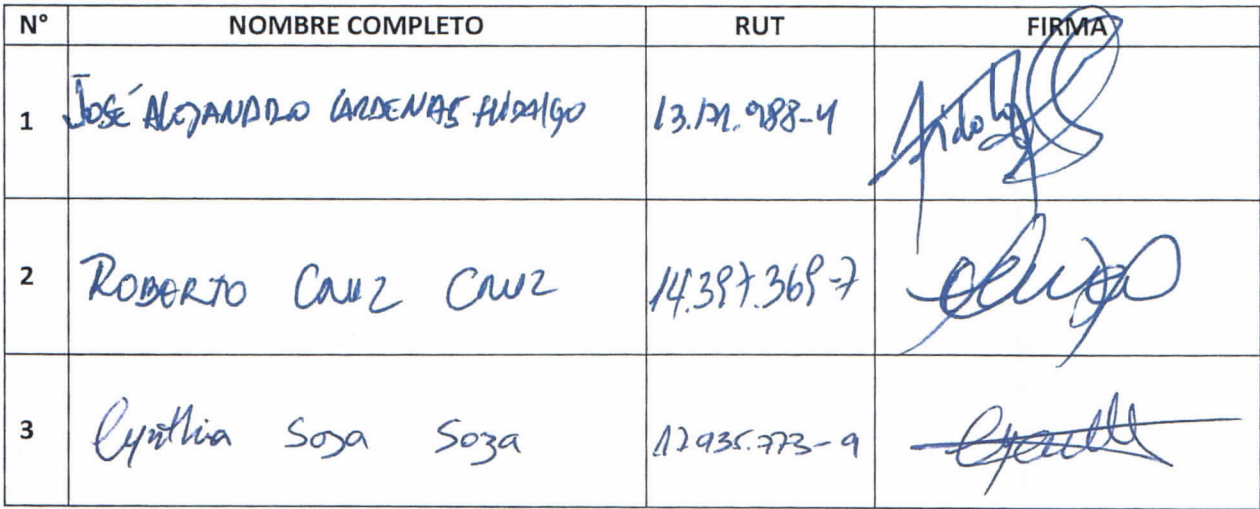 N° NOMBRE COMPLETO RUT FIRMA
1 JOSÉ ALEJANDRO CARDENAS HIDALGO 13.171.988-4
2 ROBERTO CRUZ CRUZ 14.397.369-7
3 Cynthia Soza Soza 12935.773-9